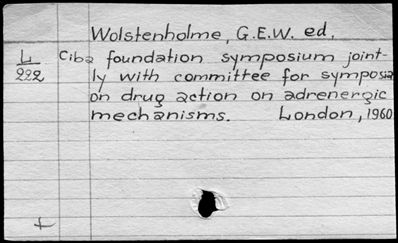 Wolstenholme, G.E.W. ed.
L
222
Ciba foundation symposium joint-
ly with committee for symposia
on drug action on adrenergic
mechanisms. London, 1960
+